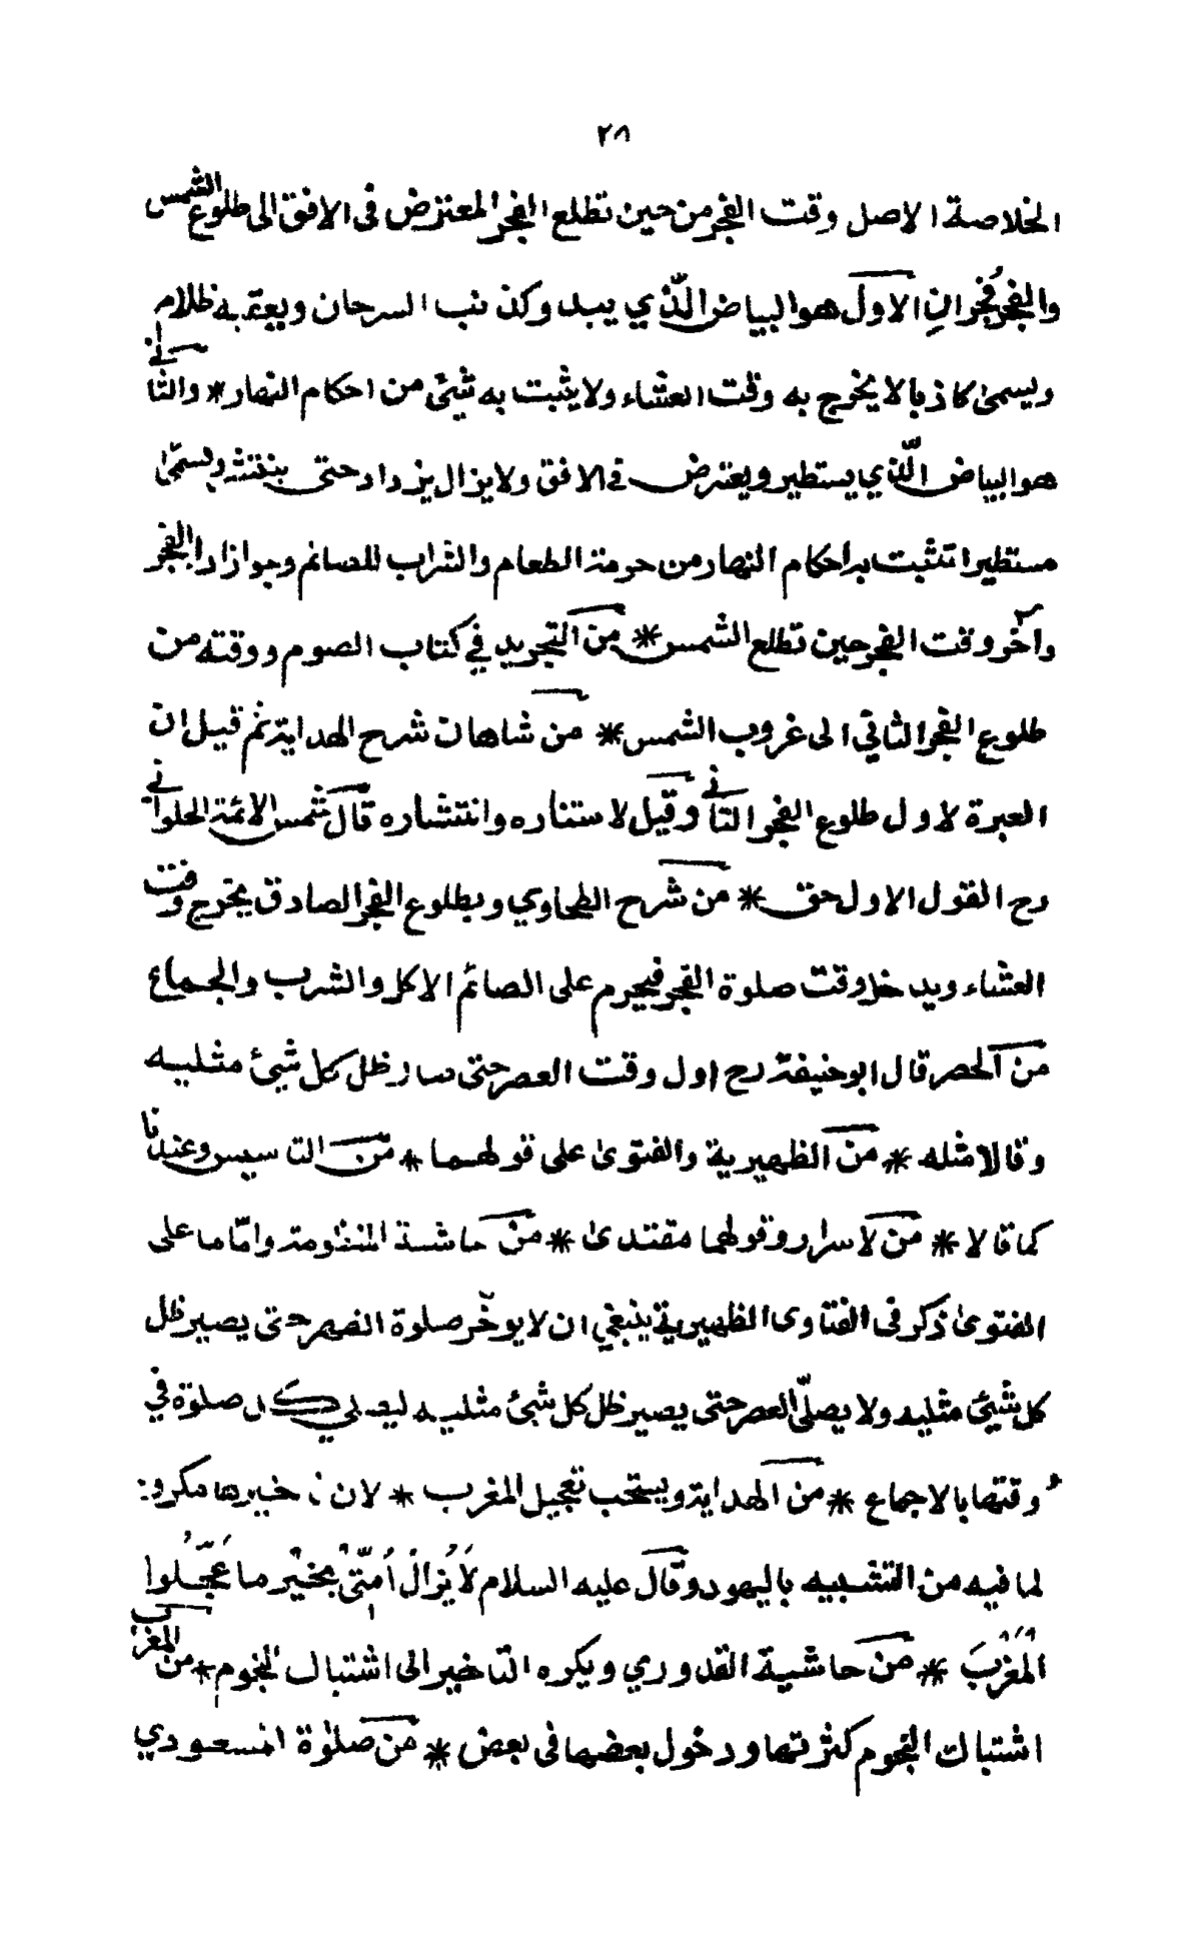 ٢٨
الخلاصة الاصل وقت الفجر من حين تطلع الفجر المعترض فى الافق الى طلوع الشمس
والفجر فجران الاول هو البياض الذي يبدو كذنب السرحان ويعقبه ظلام
ويسمى كاذبا لا يخرج به وقت العشاء ولا يثبت به شيئ من احكام النهار * والثانے
هو البياض الّذي يستطير ويعترض فے الافق ولا يزال يزداد حتى ينتشر ويسمّىٰ
مستطيرا تثبت به احكام النهار من حرمة الطعام والشراب للصائم وجواز اداء الفجر
وآخر وقت الفجر حين تطلع الشمس * من التجريد في كتاب الصوم ووقته من
طلوع الفجر الثاني الى غروب الشمس * من شاهان شرح الهداية ثم قيل ان
العبرة لاول طلوع الفجر الثانے وقيل لاستناره وانتشاره قال شمس الائمة الحلوانے
رح القول الاول حق * من شرح الطحاوي وبطلوع الفجر الصادق يخرج وقت
العشاء ويدخل وقت صلوة الفجر فيحرم على الصائم الاكل والشرب والجماع
من الحصر قال ابو حنيفة رح اول وقت العصر حتى صار ظل كل شيئ مثليه
وقالا مثله * من الظهيرية والفتوىٰ على قولهما * من التاسيس وعندنا
كما قالا * من لاسرار وقولهما مقتدىٰ * من حاشية المنظومة وامّا ما على
الفتوىٰ ذكر فى الفتاوى الظهيرية ينبغي ان لا يوخّر صلوة الظهر حتى يصير ظل
كل شيئ مثليه ولا يصلّى العصر حتى يصير ظل كل شيئ مثليه ليصلي كل صلوة في
وقتها بالاجماع * من الهداية ويستحب تعجيل المغرب * لان تاخيرها مكروه
لما فيه من التشبيه باليهود وقال عليه السلام لَا يَزالُ اُمّتىْ بخيْر ما عَجّلُوا
الْمَغْرِبَ * من حاشية القدوري ويكره التاخير الى اشتباك النجوم * من المغرب
اشتباك النجوم كثرتها ودخول بعضها فى بعض * من صلوٰة المسعودي